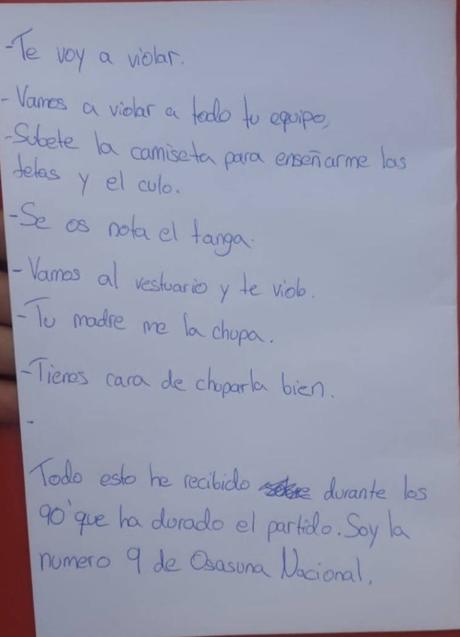 -Te voy a violar.
-Vamos a violar a todo tu equipo,
-Súbete la camiseta para enseñarme las
tetas y el culo.
-Se os nota el tanga.
-Vamos al vestuario y te violo.
-Tu madre me la chupa.
-Tienes cara de chuparla bien.
-
Todo esto he recibido durante los
90' que ha durado el partido. Soy la
numero 9 de Osasuna Nacional.